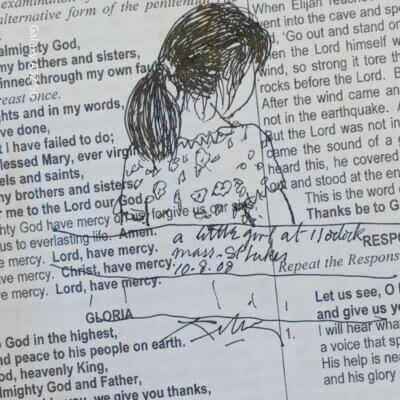 examination of
alternative form of the peniten
almighty God,
my brothers and sisters,
sinned through my own fau
reast once.
ghts and in my words,
ve done,
t I have failed to do;
lessed Mary, ever virgin
els and saints,
my brothers and sisters,
r me to the Lord our God.
ghty God have mercy on us, forgive us our
us to everlasting life. Amen.
e mercy. Lord, have mercy.
ve mercy. Christ, have mercy.
e mercy. Lord, have mercy.
GLORIA
God in the highest,
nd peace to his people on earth.
od, heavenly King,
lmighty God and Father,
we give you thanks,
When Elijah
went into the cave and sp
d, 'Go out and stand on
en the Lord himself w
wind, so strong it tore th
rocks before the Lord. B
After the wind came an
not in the earthquake. A
But the Lord was not in
came the sound of a g
heard this, he covered
and stood at the en
This is the word
Thanks be to G
RESPO
Repeat the Respons
Let us see, O
and give us yo
1.
I will hear what
a voice that sp
His help is nea
and his glory
a little girl at 11 o'clock
mass. St Lukes
10.8.08